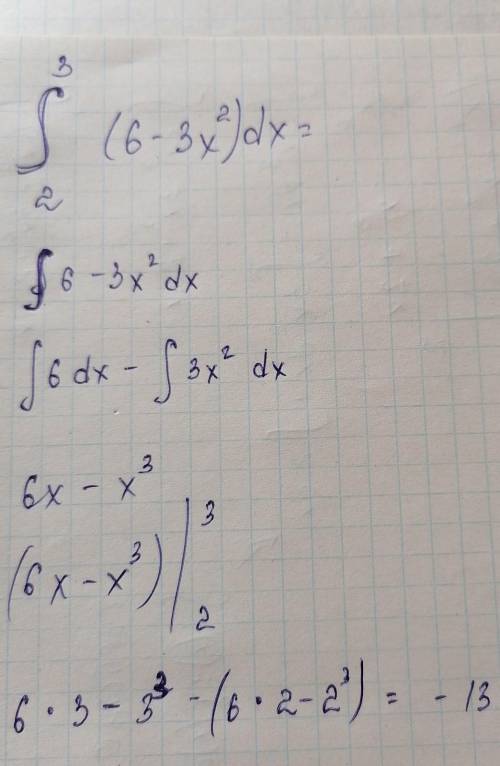 ∫₂³ (6 - 3x²)dx =
∫ 6 - 3x² dx
∫ 6 dx - ∫ 3x² dx
6x - x³
(6x - x³) |₂³
6 · 3 - 3³ - (6 · 2 - 2³) = - 13